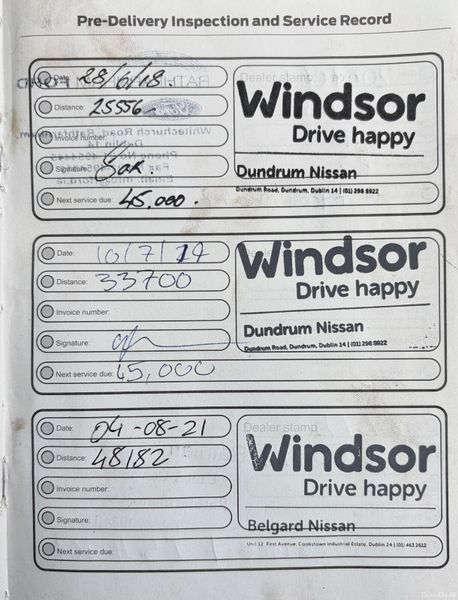 Pre-Delivery Inspection and Service Record
Date: 28/6/18.
Dealer stamp
Distance: 25556
Windsor
Invoice number:
Drive happy
Signature:
Dundrum Nissan
Dundrum Road, Dundrum, Dublin 14 | (01) 298 8922
Next service due: 45,000.
Date: 10/7/19
Windsor
Distance: 33700
Drive happy
Invoice number:
Dundrum Nissan
Signature:
Dundrum Road, Dundrum, Dublin 14 | (01) 298 8922
Next service due: 45,000
Date: 04-08-21
Dealer stamp
Distance: 48182
Windsor
Invoice number:
Drive happy
Signature:
Belgard Nissan
Unit 12, First Avenue, Cookstown Industrial Estate, Dublin 24 | (01) 463 2612
Next service due: